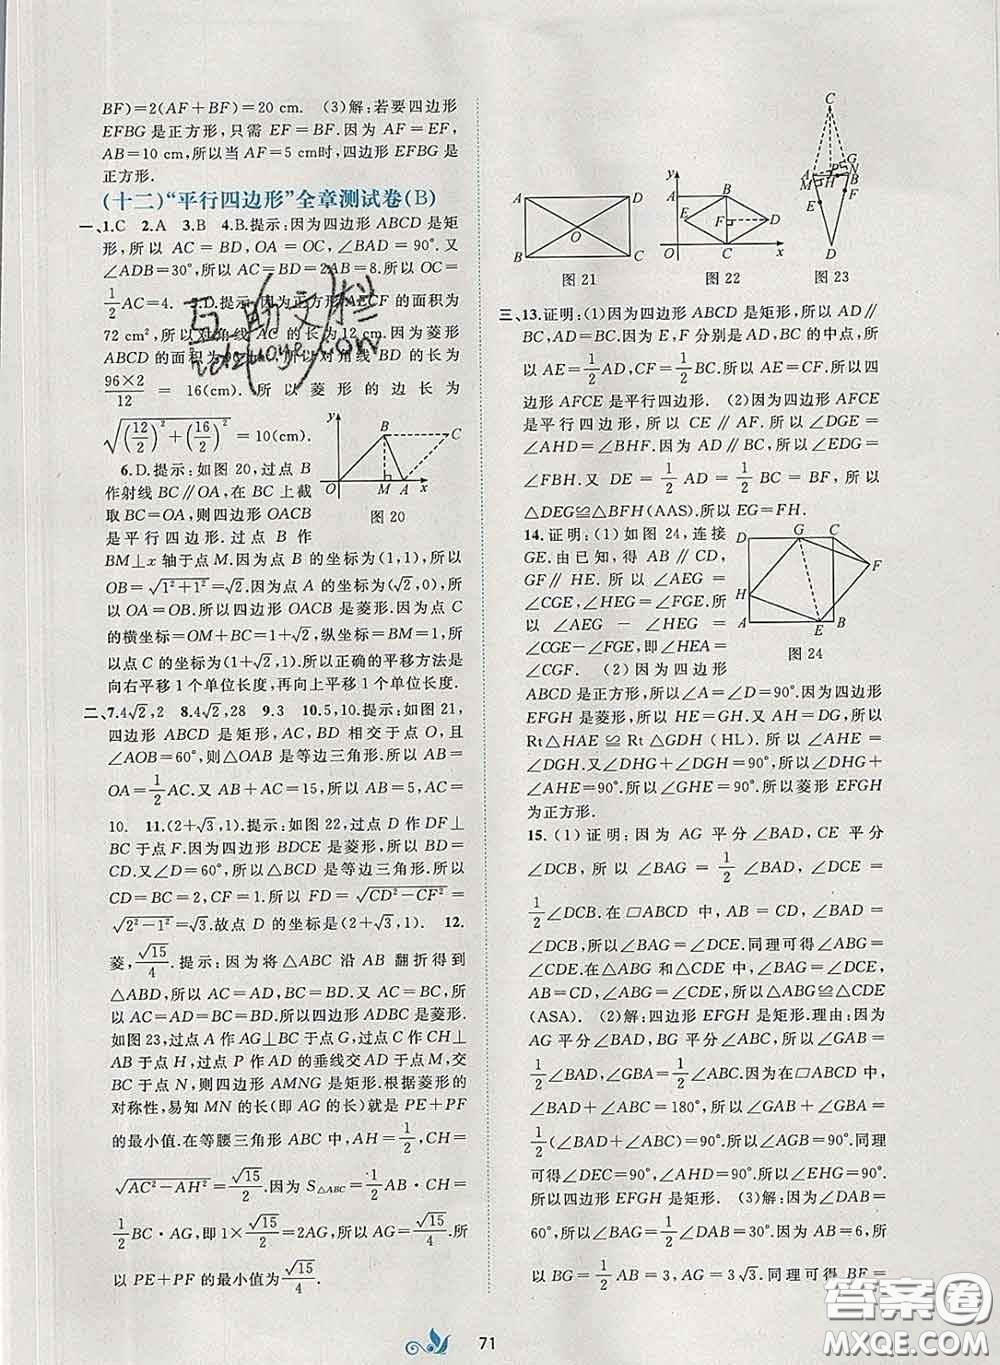 BF)=2(AF+BF)=20 cm. (3)解:若要四边形
EFBG 是正方形,只需 EF=BF.因为 AF=EF,
AB=10 cm,所以当 AF=5 cm时,四边形 EFBG 是
正方形.
(十二)“平行四边形”全章测试卷(B)
一、1.C 2.A 3.B 4.B.提示:因为四边形 ABCD 是矩
形,所以 AC=BD,OA=OC,∠BAD=90°.又
∠ADB=30°,所以 AC=BD=2AB=8.所以 OC=
1/2 AC=4. 5.D.提示:因为正方形 AECF 的面积为
72 cm²,所以对角线 AC 的长为 12 cm.因为菱形
ABCD 的面积为 96 cm²,所以对角线 BD 的长为
96×2/12 = 16(cm). 所以菱形的边长为
√((12/2)²+(16/2)²)=10(cm).
6.D.提示:如图 20,过点 B
作射线 BC∥OA,在 BC 上截
取 BC=OA,则四边形 OACB
是平行四边形.过点 B 作
y B C O M A x
图 20
BM⊥x 轴于点 M.因为点 B 的坐标为(1,1),所以
OB=√(1²+1²)=√2.因为点 A 的坐标为(√2,0),所
以 OA=OB.所以四边形 OACB 是菱形.因为点 C
的横坐标=OM+BC=1+√2,纵坐标=BM=1,所
以点 C 的坐标为(1+√2,1).所以正确的平移方法是
向右平移 1 个单位长度,再向上平移 1 个单位长度.
二、7.4√2,2 8.4√2,28 9.3 10.5,10.提示:如图 21,
四边形 ABCD 是矩形,AC,BD 相交于点 O,且
∠AOB=60°,则△OAB 是等边三角形.所以 AB=
OA=1/2 AC.又 AB+AC=15,所以 AB=5,AC=
10. 11.(2+√3,1).提示:如图 22,过点 D 作 DF⊥
BC 于点 F.因为四边形 BDCE 是菱形,所以 BD=
CD.又∠D=60°,所以△BCD 是等边三角形.所以
CD=BC=2,CF=1.所以 FD=√(CD²−CF²)=
√(2²−1²)=√3.故点 D 的坐标是(2+√3,1). 12.
菱,√15/4.提示:因为将△ABC 沿 AB 翻折得到
△ABD,所以 AC=AD,BC=BD.又 AC=BC,所以
AC=AD=BC=BD.所以四边形 ADBC 是菱形.
如图 23,过点 A 作 AG⊥BC 于点 G,过点 C 作 CH⊥
AB 于点 H,过点 P 作 AD 的垂线交 AD 于点 M,交
BC 于点 N,则四边形 AMNG 是矩形.根据菱形的
对称性,易知 MN 的长(即 AG 的长)就是 PE+PF
的最小值.在等腰三角形 ABC 中,AH=1/2,CH=
√(AC²−AH²)=√15/2.因为 S△ABC=1/2 AB·CH=
1/2 BC·AG,即 1×√15/2=2AG,所以 AG=√15/4.所
以 PE+PF 的最小值为√15/4.
A D O B C
图 21
y A B E F D O C x
图 22
C G A P B N M H E F D
图 23
三、13.证明:(1)因为四边形 ABCD 是矩形,所以 AD∥
BC,AD=BC.因为 E,F 分别是 AD,BC 的中点,所
以 AE=1/2 AD,CF=1/2 BC.所以 AE=CF.所以四
边形 AFCE 是平行四边形. (2)因为四边形 AFCE
是平行四边形,所以 CE∥AF.所以∠DGE=
∠AHD=∠BHF.因为 AD∥BC,所以∠EDG=
∠FBH.又 DE=1/2 AD=1/2 BC=BF,所以
△DEG≌△BFH(AAS).所以 EG=FH.
14.证明:(1)如图 24,连接
GE.由已知,得 AB∥CD,
GF∥HE.所以∠AEG=
∠CGE,∠HEG=∠FGE.所
以∠AEG−∠HEG=
∠CGE−∠FGE,即∠HEA=
∠CGF. (2)因为四边形
D G C F H A E B
图 24
ABCD 是正方形,所以∠A=∠D=90°.因为四边形
EFGH 是菱形,所以 HE=GH.又 AH=DG,所以
Rt△HAE≌Rt△GDH(HL).所以∠AHE=
∠DGH.又∠DHG+∠DGH=90°,所以∠DHG+
∠AHE=90°.所以∠GHE=90°.所以菱形 EFGH
为正方形.
15.(1)证明:因为 AG 平分∠BAD,CE 平分
∠DCB,所以∠BAG=1/2∠BAD,∠DCE=
1/2∠DCB.在▱ABCD 中,AB=CD,∠BAD=
∠DCB,所以∠BAG=∠DCE.同理可得∠ABG=
∠CDE.在△ABG 和△CDE 中,∠BAG=∠DCE,
AB=CD,∠ABG=∠CDE,所以△ABG≌△CDE
(ASA). (2)解:四边形 EFGH 是矩形.理由:因为
AG 平分∠BAD,BG 平分∠ABC,所以∠GAB=
1/2∠BAD,∠GBA=1/2∠ABC.因为在▱ABCD 中,
∠BAD+∠ABC=180°,所以∠GAB+∠GBA=
1/2(∠BAD+∠ABC)=90°.所以∠AGB=90°.同理
可得∠DEC=90°,∠AHD=90°.所以∠EHG=90°.
所以四边形 EFGH 是矩形. (3)解:因为∠DAB=
60°,所以∠BAG=1/2∠DAB=30°.因为 AB=6,所
以 BG=1/2 AB=3,AG=3√3.同理可得 BF=
71
答案圈
MXQE.COM